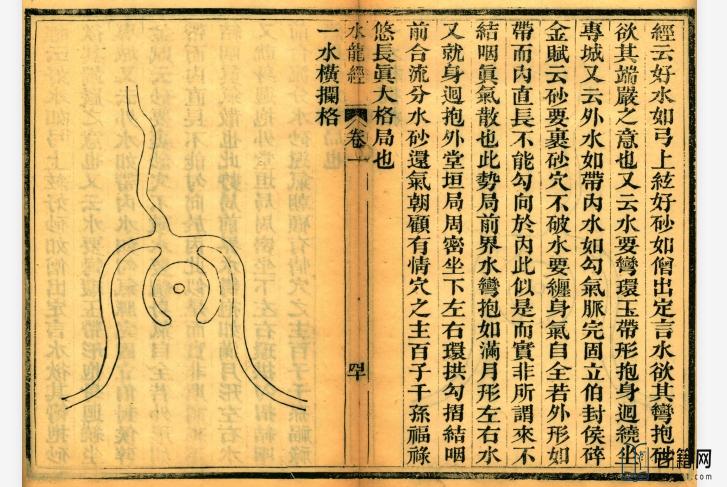 經云好水如弓上絃好砂如僧出定言水欲其彎抱砂
欲其端嚴之意也又云水要彎環玉帶形抱身迴繞坐
專城又云外水如帶內水如勾氣脈完固立伯封侯碎
金賦云砂要裹砂穴不破水要纏身氣自全若外形如
帶而內直長不能勾向於內此似是而實非所謂來不
結咽眞氣散也此勢局前界水彎抱如滿月形左右水
又就身迴抱外堂垣局周密坐下左右環拱勾搢結咽
前合流分水砂還氣朝顧有情穴之主百子千孫福祿
悠長眞大格局也
水龍經
卷一
一水橫攔格
古籍网